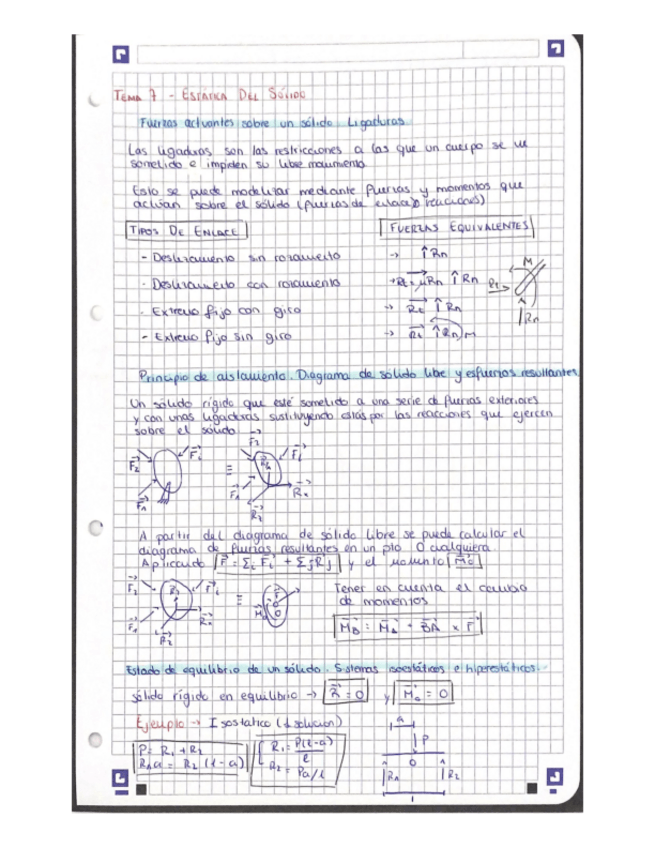 TEMA 7 - ESTÁTICA DEL SÓLIDO
Fuerzas actuantes sobre un sólido. Ligaduras.
Las ligaduras son las restricciones a las que un cuerpo se ve
sometido e impiden su libre movimiento.
Esto se puede modelizar mediante fuerzas y momentos que
actúan sobre el sólido (fuerzas de enlace o reacciones)
TIPOS DE ENLACE
FUERZAS EQUIVALENTES
- Deslizamiento sin rozamiento → ↑Rn
- Deslizamiento con rozamiento → Rt = μRn ↑Rn
- Extremo fijo con giro → Rt ↑Rn
- Extremo fijo sin giro → Rt ↑Rn M
M
Rt
Rn
Principio de aislamiento. Diagrama de sólido libre y esfuerzos resultantes.
Un sólido rígido que esté sometido a una serie de fuerzas exteriores
y con unas ligaduras sustituyendo estas por las reacciones que ejercen
sobre el sólido
F2 Fi F1 ≡ F2 Fi F1
A partir del diagrama de sólido libre se puede calcular el
diagrama de fuerzas resultantes en un pto O cualquiera.
Aplicando F = Σi Fi + Σj Rj y el momento Mo
Tener en cuenta el cambio
de momentos
MB = MA + BA × F
Estado de equilibrio de un sólido. Sistemas isostáticos e hiperestáticos.
sólido rígido en equilibrio → R = 0 y Mo = 0
Ejemplo → Isostático (1 solución)
P = R1 + R2
R1a = R2 (l-a)
R1 = P(l-a)/l
R2 = Pa/l
a
P
O
R1 R2
l